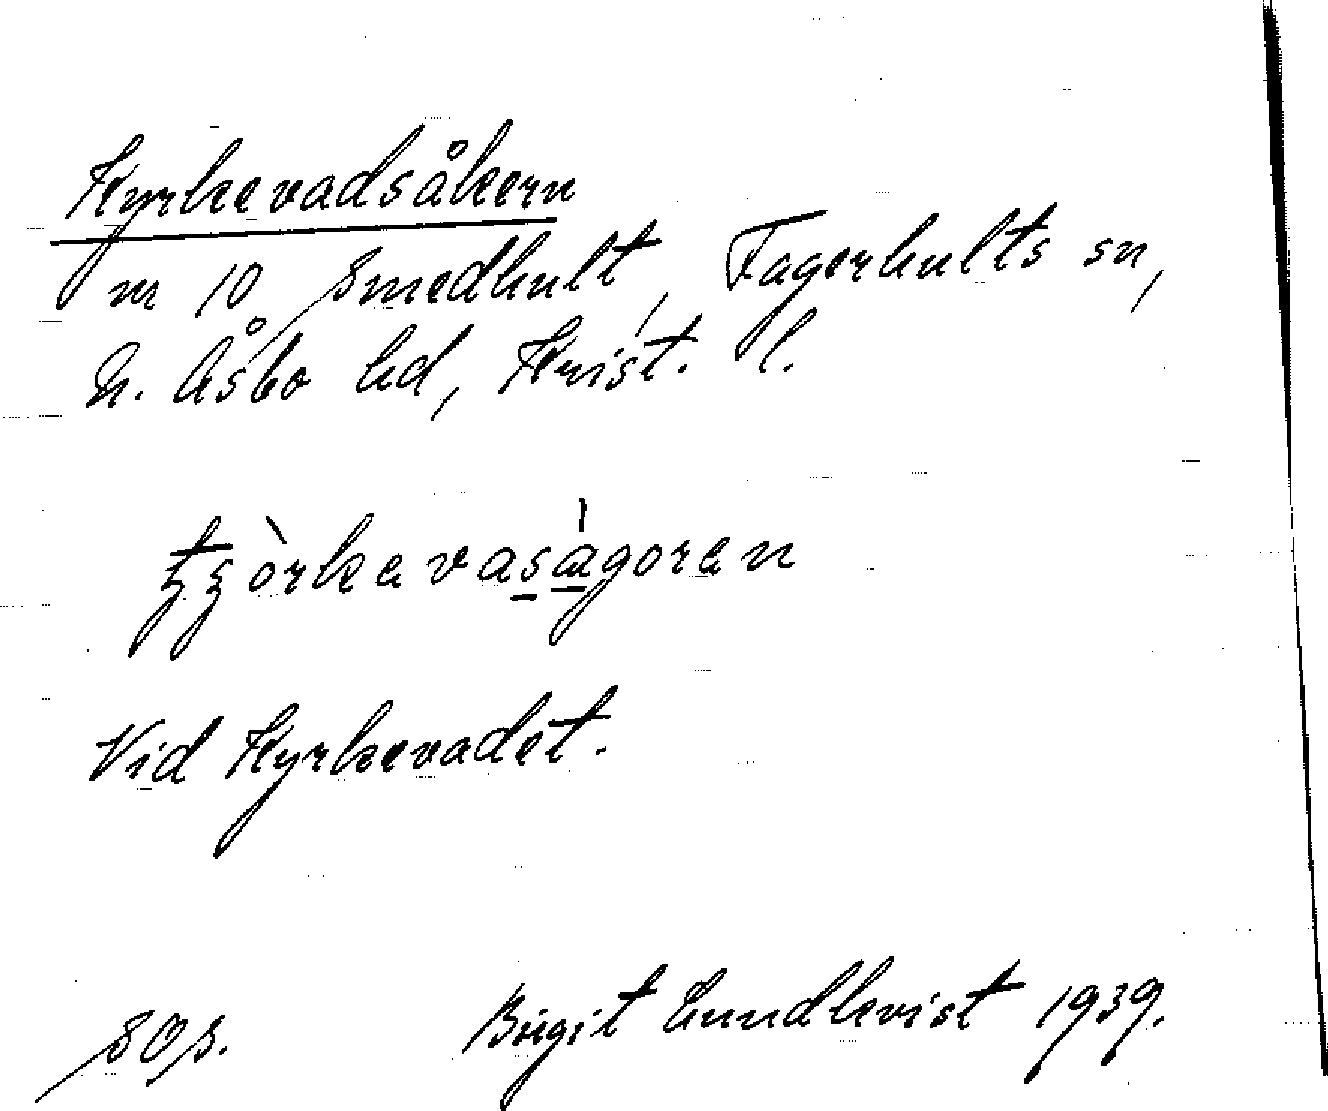 Kyrkevadsåkern
nr 10 Smedhult, Fagerhults sn,
N. Åsbo hd, Krist. l.
Vid Kyrkevadet.
SOS. Birgit Lundkvist 1939.